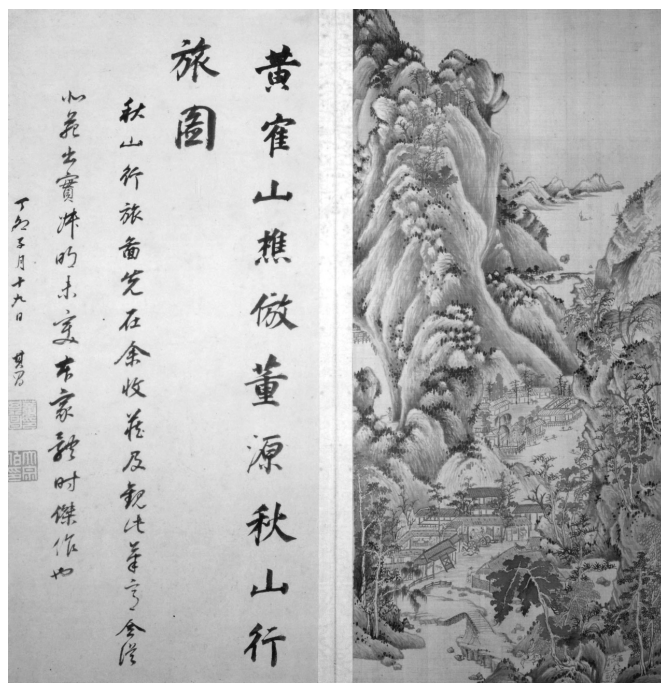 黃寉山樵倣董源秋山行
旅圖
秋山行旅啚先在余收藏及觀此筆意全從
北苑出實叔明未變本家體時傑作也
丁卯子月十九日 其昌